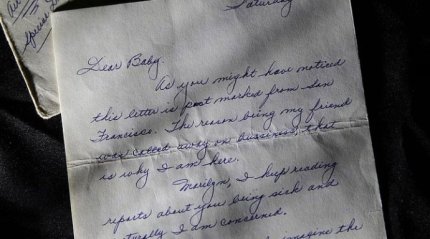 Air
Special
Saturday
Dear Baby,
As you might have noticed
this letter is post marked from San
Francisco. The reason being my friend
was called away on bussiness, that
is why I am here.
Marilyn, I keep reading
reports about you being sick and
naturally I am concerned.
imagine the